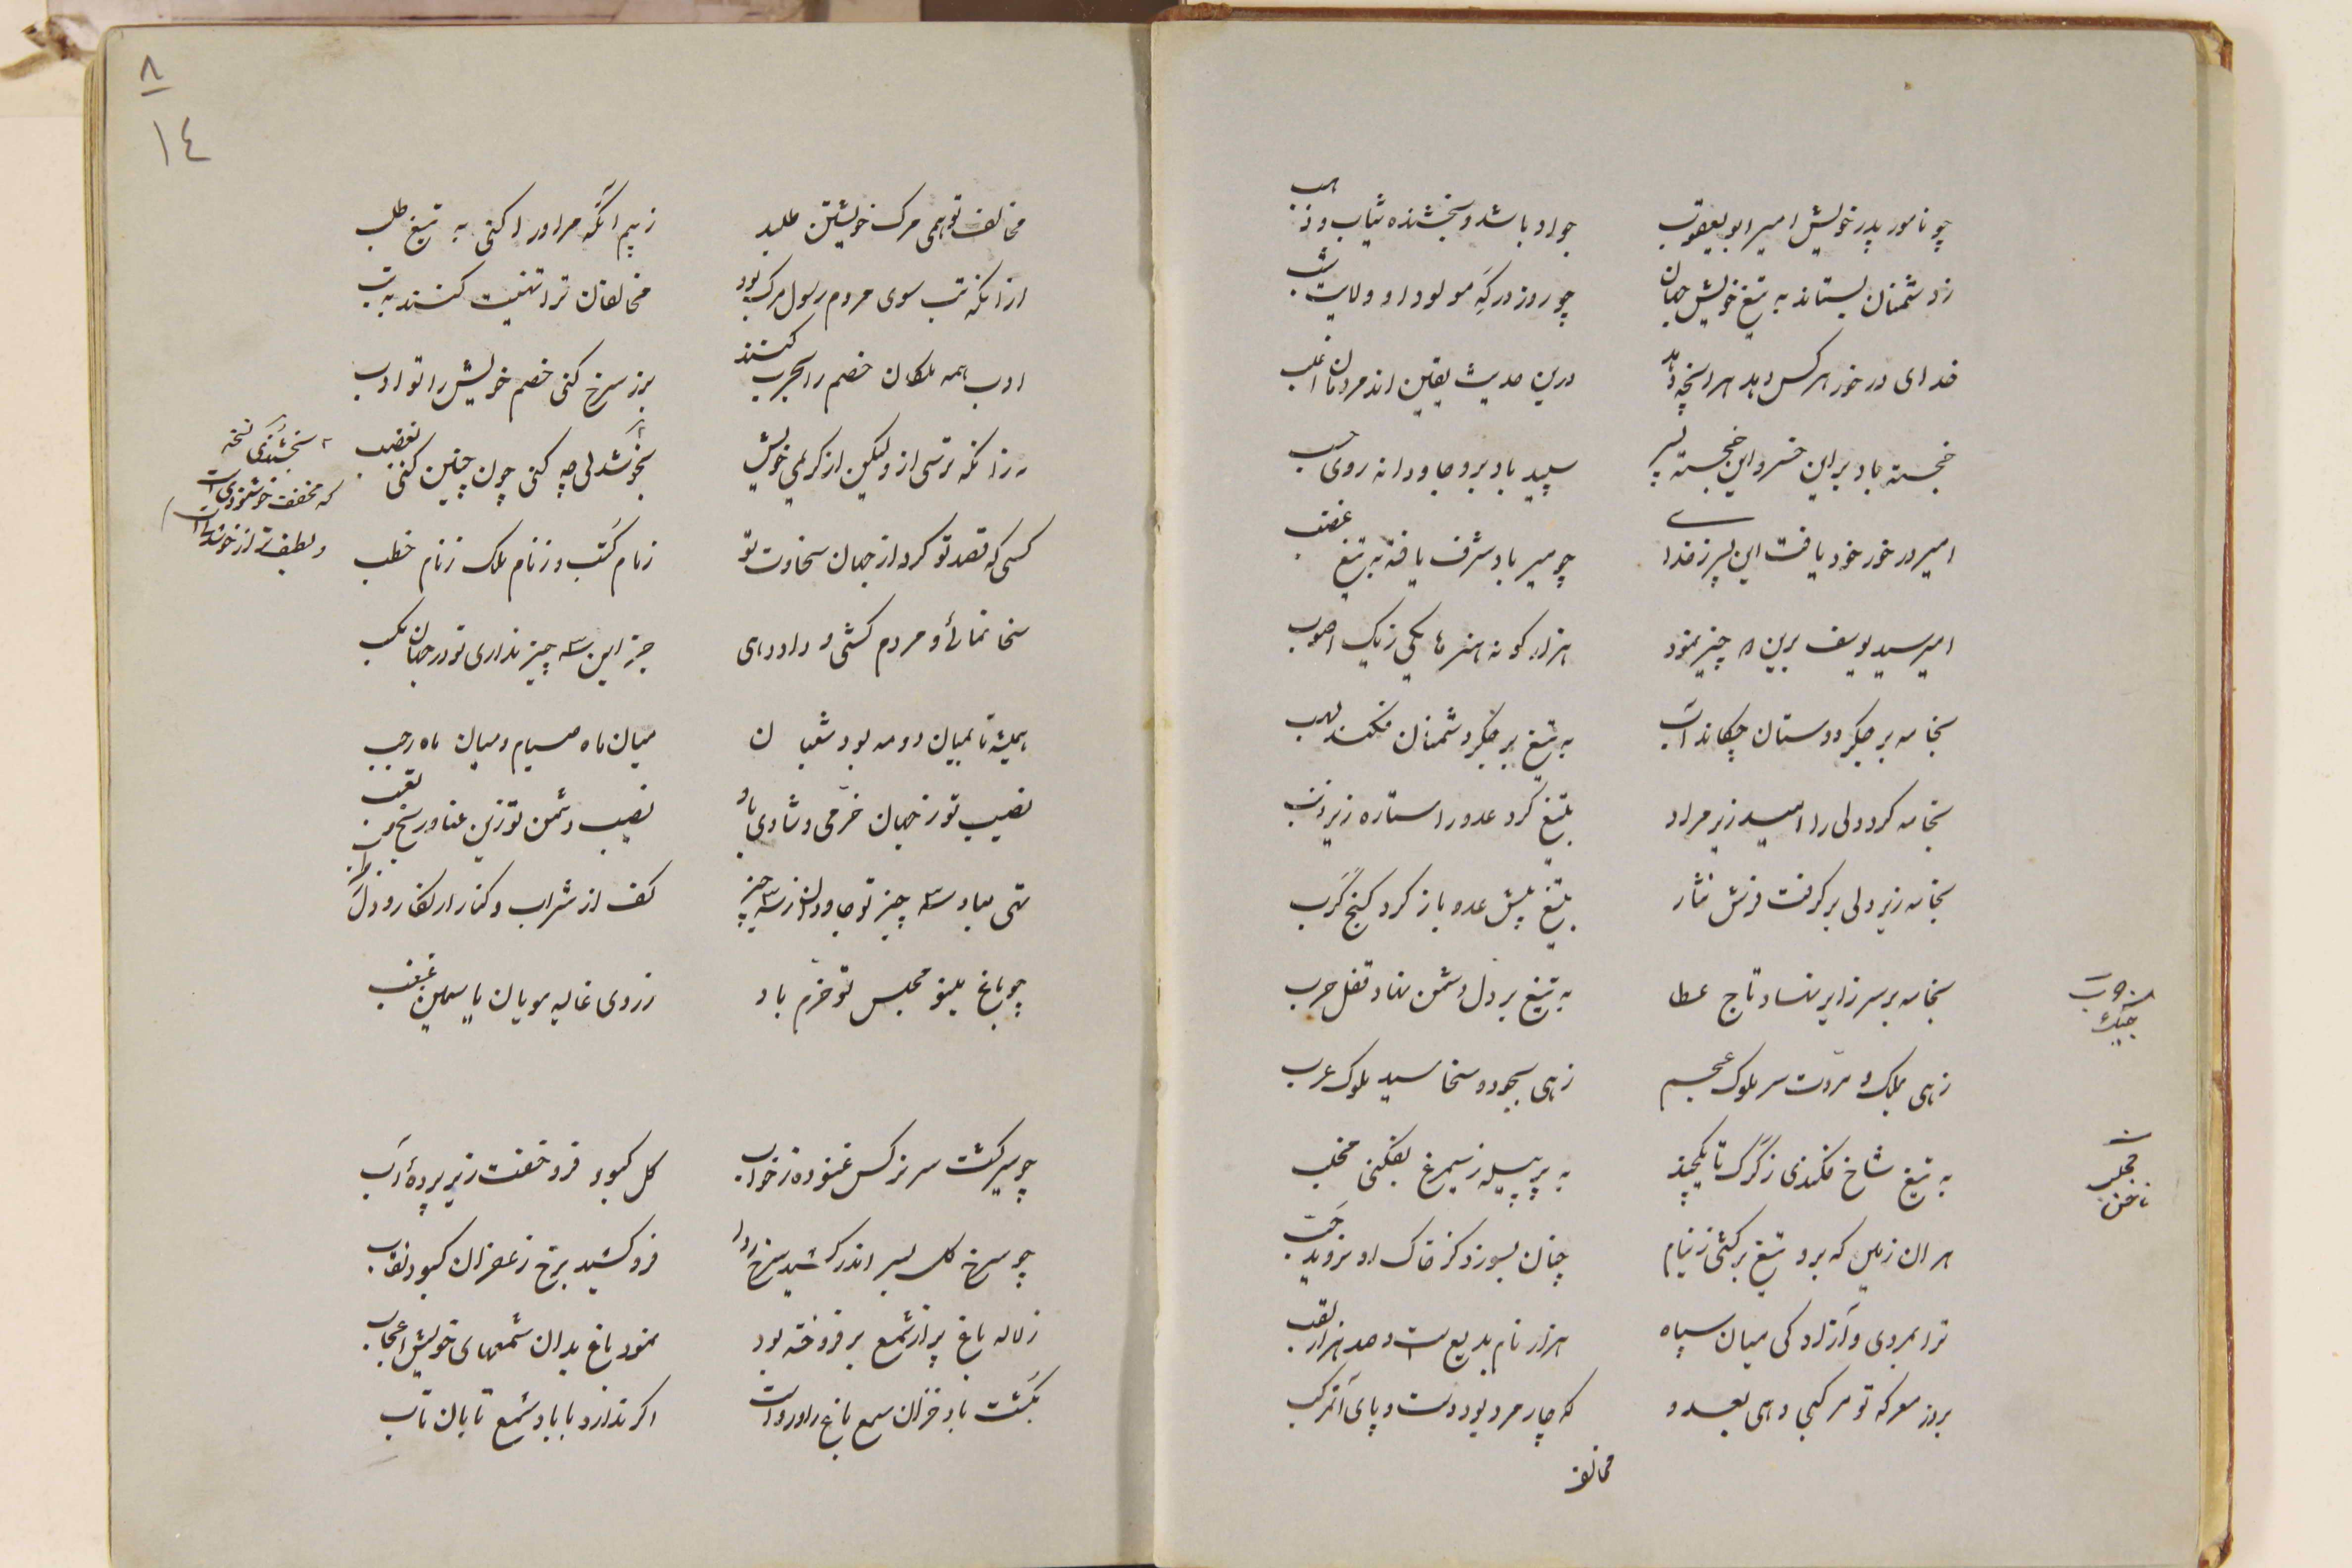 چو نامور پدر خویش امیر ابو یعقوب
جواد باشد و بخشنده ثیاب و ذهب
ز دشمنان بستاند به تیغ خویش جهان
چو روز درگَه مولود او ولایت شب
خدای در خور هر کس دهد هر انچه دهد
درین حدیث یقین اند مردمان اغلب
خجسته باد برین خسرو این خجسته پسر
سپید باد برو جاودانه روی حسب
امیر در خور خود یافت این پسر ز خدا
چو میر باد شرف یافته به تیغ
امیر سید یوسف برین چیز نمود
هزار گونه هنرها یکی ز یک اصوب
بخامه بر جگر دوستان چکاند آب
به تیغ بر جگر دشمنان فکند لهب
بخامه کرد ولی را امید زیر مراد
بتیغ کرد عدو را ستاره زیر ذنب
بخامه زیر ولی بر گرفت فرش نثار
بتیغ پیش عدو باز کرد گنج کُرَب
بخامه بر سر زایر نهاد تاج عطا
به تیغ بر دل دشمن نهاد قفل حرب
حرب
جنگ
زهی بملک و مروّت سر ملوک عجم
زهی بجود و سخا سید ملوک عرب
به تیغ شاخ فکندی ز کرگ تا یکچند
به پر پیسه ز سیمرغ بفکنی مخلب
مخلب
ناخن
هر ان زمین که برو تیغ برکشی ز نیام
چنان بسوزد کز خاک او نروید حَب
ترا بمردی و آزادگی میان سپاه
هزار نام بدیع است و صد هزار لقب
بروز معرکه تو مرکبی دهی بعدو
که چار مرد بود دست و پای آن مرکب
مخالف
۸
١٤
مخالف تو همی مرگ خویشتن طلبد
ز بیم انکه مر او را کنی به تیغ طلب
ازانکه تب سوی مردم رسول مرگ بود
مخالفان ترا تهنیت کنند به تب
ادب همه ملکان خصم را بحرب کنند
برز سرخ کنی خصم خویش را تو ادب
نه زانکه ترسی ازو لیکن از کریمی خویش
بخوُشدلی چه کنی چون چنین کنی بغضب
بخشندگی نسخه
که مخفف خوشنودی است
و لطیف تر از خوشدلی است
کسی که قصد تو کرد از جهان سخاوت تو
ز نام کَسَب و ز نام ملک ز نام خطب
سخا نمائی و مردم کشی و داد دهی
جز این سه چیز نداری تو در جهان مکسب
همیشه تا بمیان دو مه بود شعبان
میان ماه صیام و میان ماه رجب
نصیب تو ز جهان خرّمی و شادی باد
نصیب دشمن تو زین عنا و رنج و تعب
تهی مباد سه چیز تو جاودان ز سه چیز
کف از شراب و کنار از نگار و دل ز طرب
چو باغ مینو مجلس تو خرّم باد
ز روی غالیه مویان یاسمین غبغب
چو سیر گشت سر نرگس غنوده ز خواب
گل کبود فرو خفت زیر پردهٔ آب
چو سرخ گل بسر اندر کشید سرخ ردا
فرو کشید برخ زعفران کبود نقاب
ز لاله باغ پر از شمع بر فروخته بود
نمود باغ بدان شمعهای خویش اعجاب
بکُشت باد خزان شمع باغ را و رواست
اگر ندارد با باد شمع تابان تاب